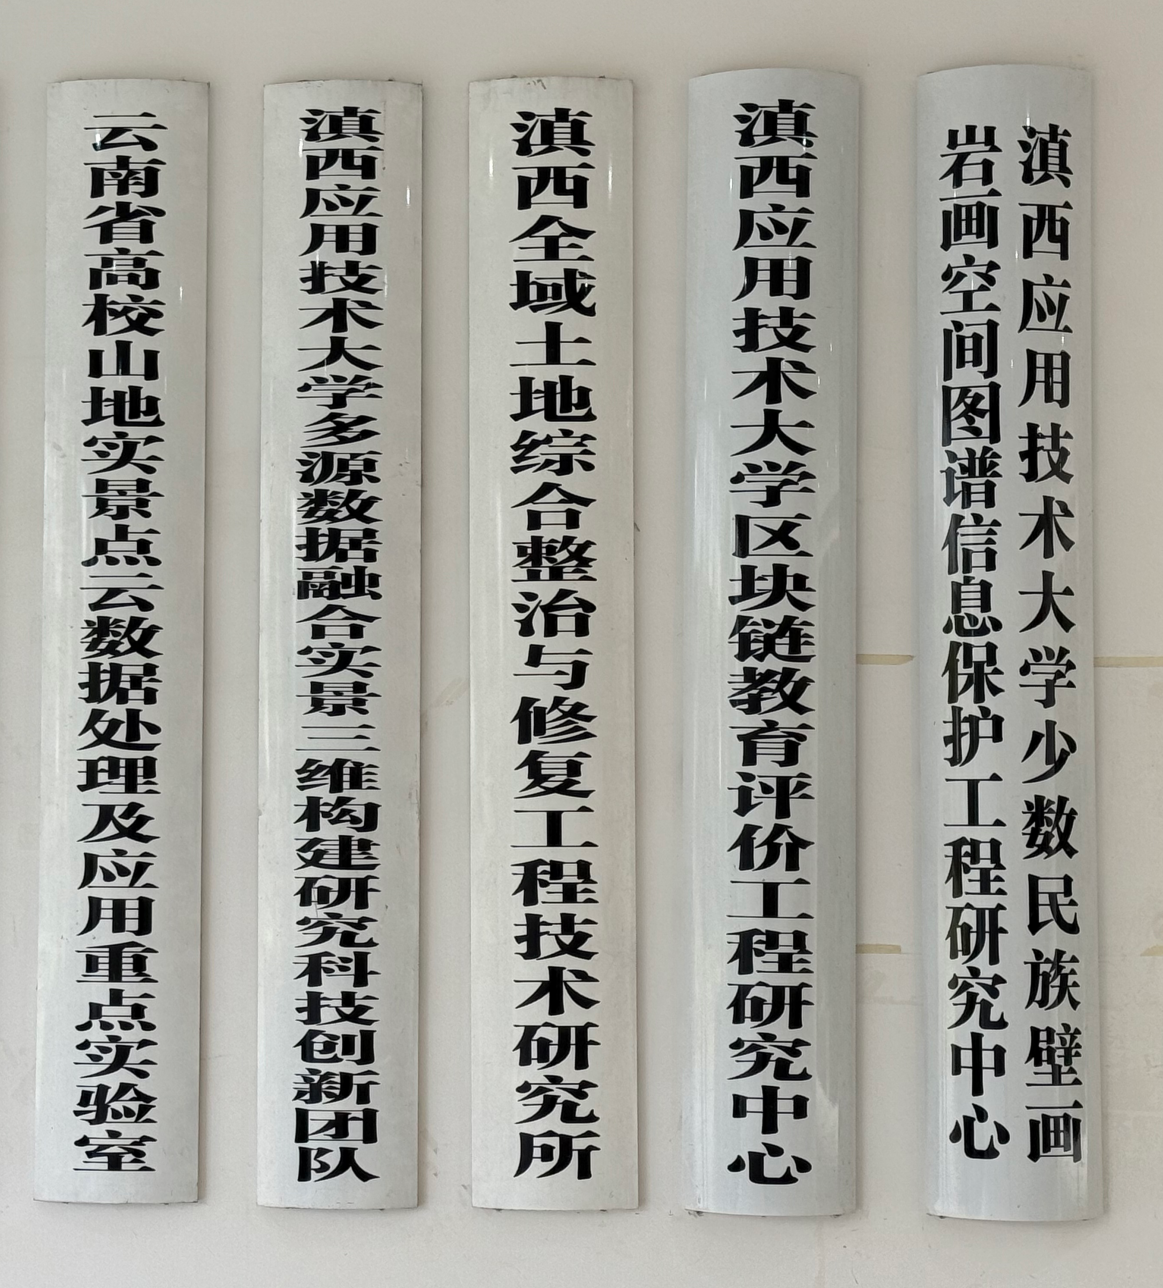 云南省高校山地实景点云数据处理及应用重点实验室
滇西应用技术大学多源数据融合实景三维构建研究科技创新团队
滇西全域土地综合整治与修复工程技术研究所
滇西应用技术大学区块链教育评价工程研究中心
滇西应用技术大学少数民族壁画
岩画空间图谱信息保护工程研究中心